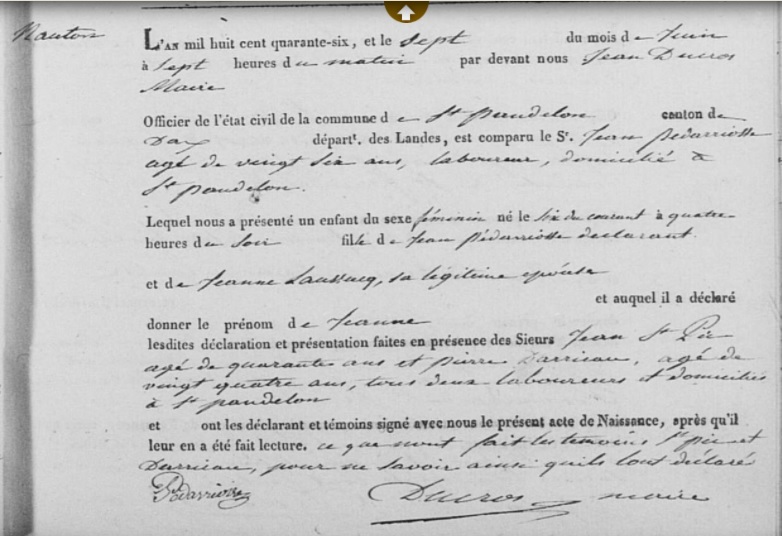 Nauton
L'AN mil huit cent quarante-six, et le sept du mois de Juin
à sept heures du matin par devant nous Jean Ducros
Maire
Officier de l'état civil de la commune de St pandelon canton de
Dax départt. des Landes, est comparu le Sr. Jean pédarriosse
agé de vingt six ans, laboureur, domicilié à
St pandelon.
Lequel nous a présenté un enfant du sexe féminin né le six du courant à quatre
heures du soir fille de Jean Pédarriosse declarant
et de Jeanne Laussucq, sa légitime epouse
et auquel il a déclaré
donner le prénom de Jeanne
lesdites déclaration et présentation faites en présence des Sieurs Jean St Pic
agé de quarante ans et pierre Darrieau, agé de
vingt quatre ans, tous deux laboureurs et domiciliés
à St pandelon
et ont les déclarant et témoins signé avec nous le présent acte de Naissance, après qu'il
leur en a été fait lecture. ce que n'ont fait les temoins St pic et
Darrieau, pour ne savoir ainsi qu'ils l'ont déclaré
Ducros maire